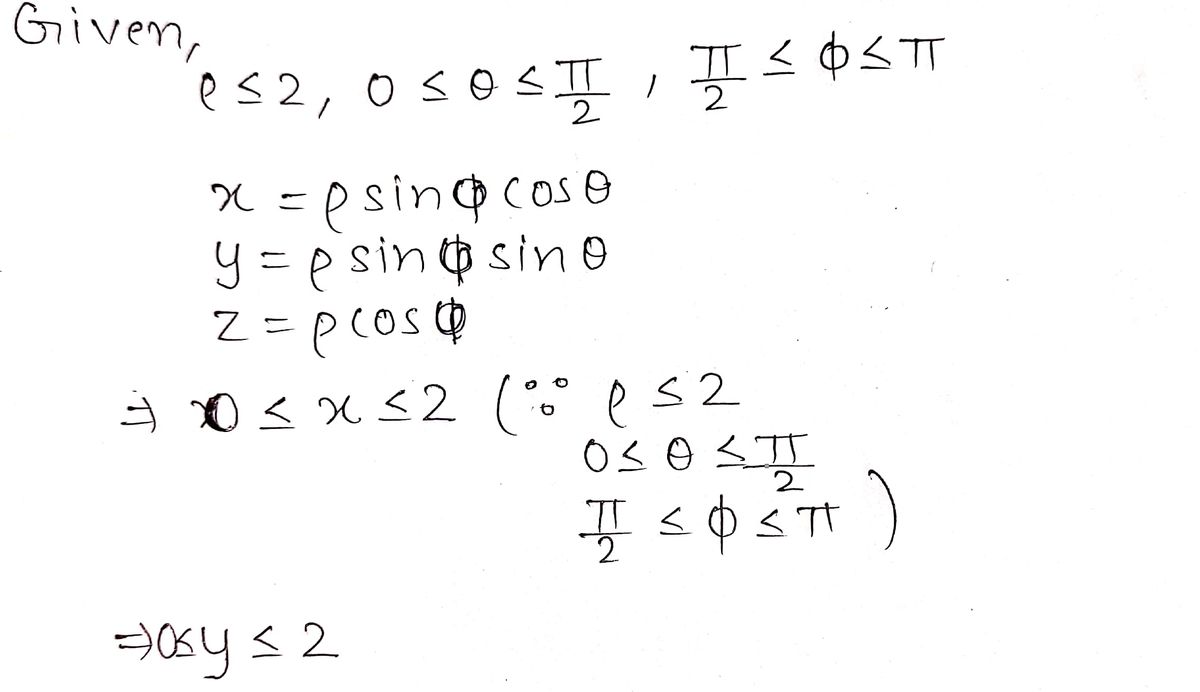 Given,
ρ ≤ 2, 0 ≤ θ ≤ π/2, π/2 ≤ ϕ ≤ π
x = ρ sin ϕ cos θ
y = ρ sin ϕ sin θ
z = ρ cos ϕ
⇒ 0 ≤ x ≤ 2 (∵ ρ ≤ 2
0 ≤ θ ≤ π/2
π/2 ≤ ϕ ≤ π)
⇒ 0 ≤ y ≤ 2